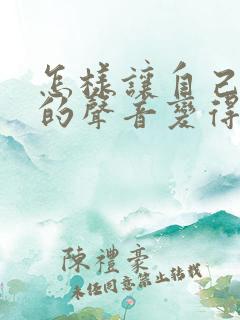 怎樣讓自己
的聲音變得
陳禮豪
未任同意禁止轉載